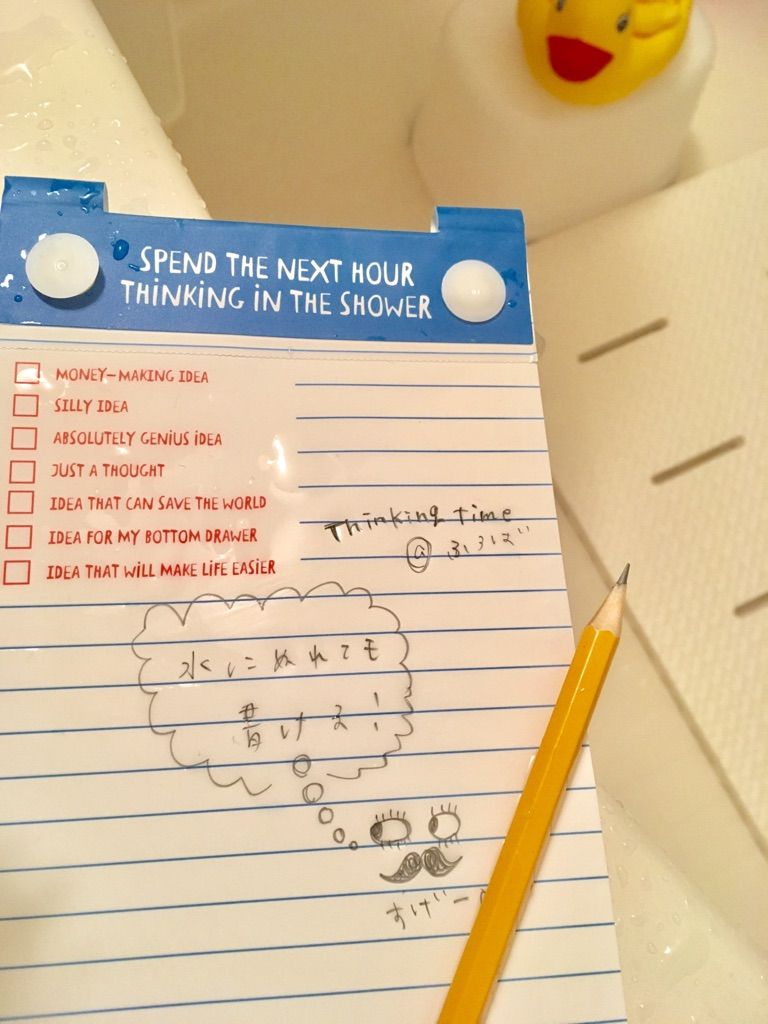 SPEND THE NEXT HOUR
THINKING IN THE SHOWER
MONEY-MAKING IDEA
SILLY IDEA
ABSOLUTELY GENIUS IDEA
JUST A THOUGHT
IDEA THAT CAN SAVE THE WORLD
IDEA FOR MY BOTTOM DRAWER
IDEA THAT WILL MAKE LIFE EASIER
Thinking Time
@ ふろば
水にぬれても
書ける!
すげー